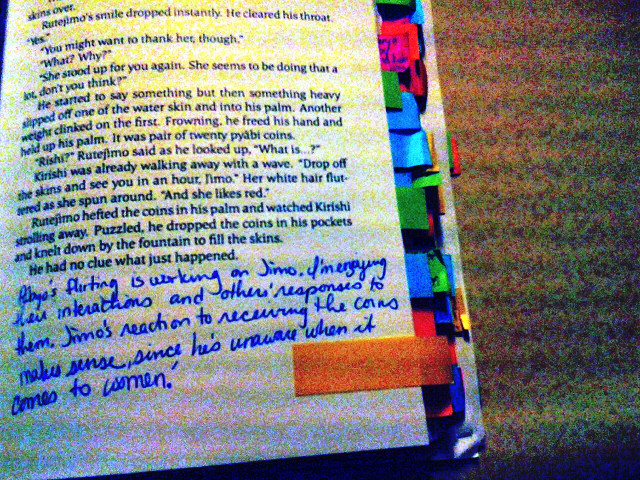 skins over.
Rutejìmo's smile dropped instantly. He cleared his throat.
"Yes."
"You might want to thank her, though."
"What? Why?"
"She stood up for you again. She seems to be doing that a
lot, don't you think?"
He started to say something but then something heavy
slipped off one of the water skin and into his palm. Another
weight clinked on the first. Frowning, he freed his hand and
held up his palm. It was pair of twenty pyābi coins.
"Rishi?" Rutejìmo said as he looked up, "What is...?"
Kirishi was already walking away with a wave. "Drop off
the skins and see you in an hour, Jìmo." Her white hair flut-
tered as she spun around. "And she likes red."
Rutejìmo hefted the coins in his palm and watched Kirishi
strolling away. Puzzled, he dropped the coins in his pockets
and knelt down by the fountain to fill the skins.
He had no clue what just happened.
flirting is working on Jimo. I'm enjoying
their interactions and others' responses to
them. Jimo's reaction to receiving the coins
makes sense, since he's unaware when it
comes to women!